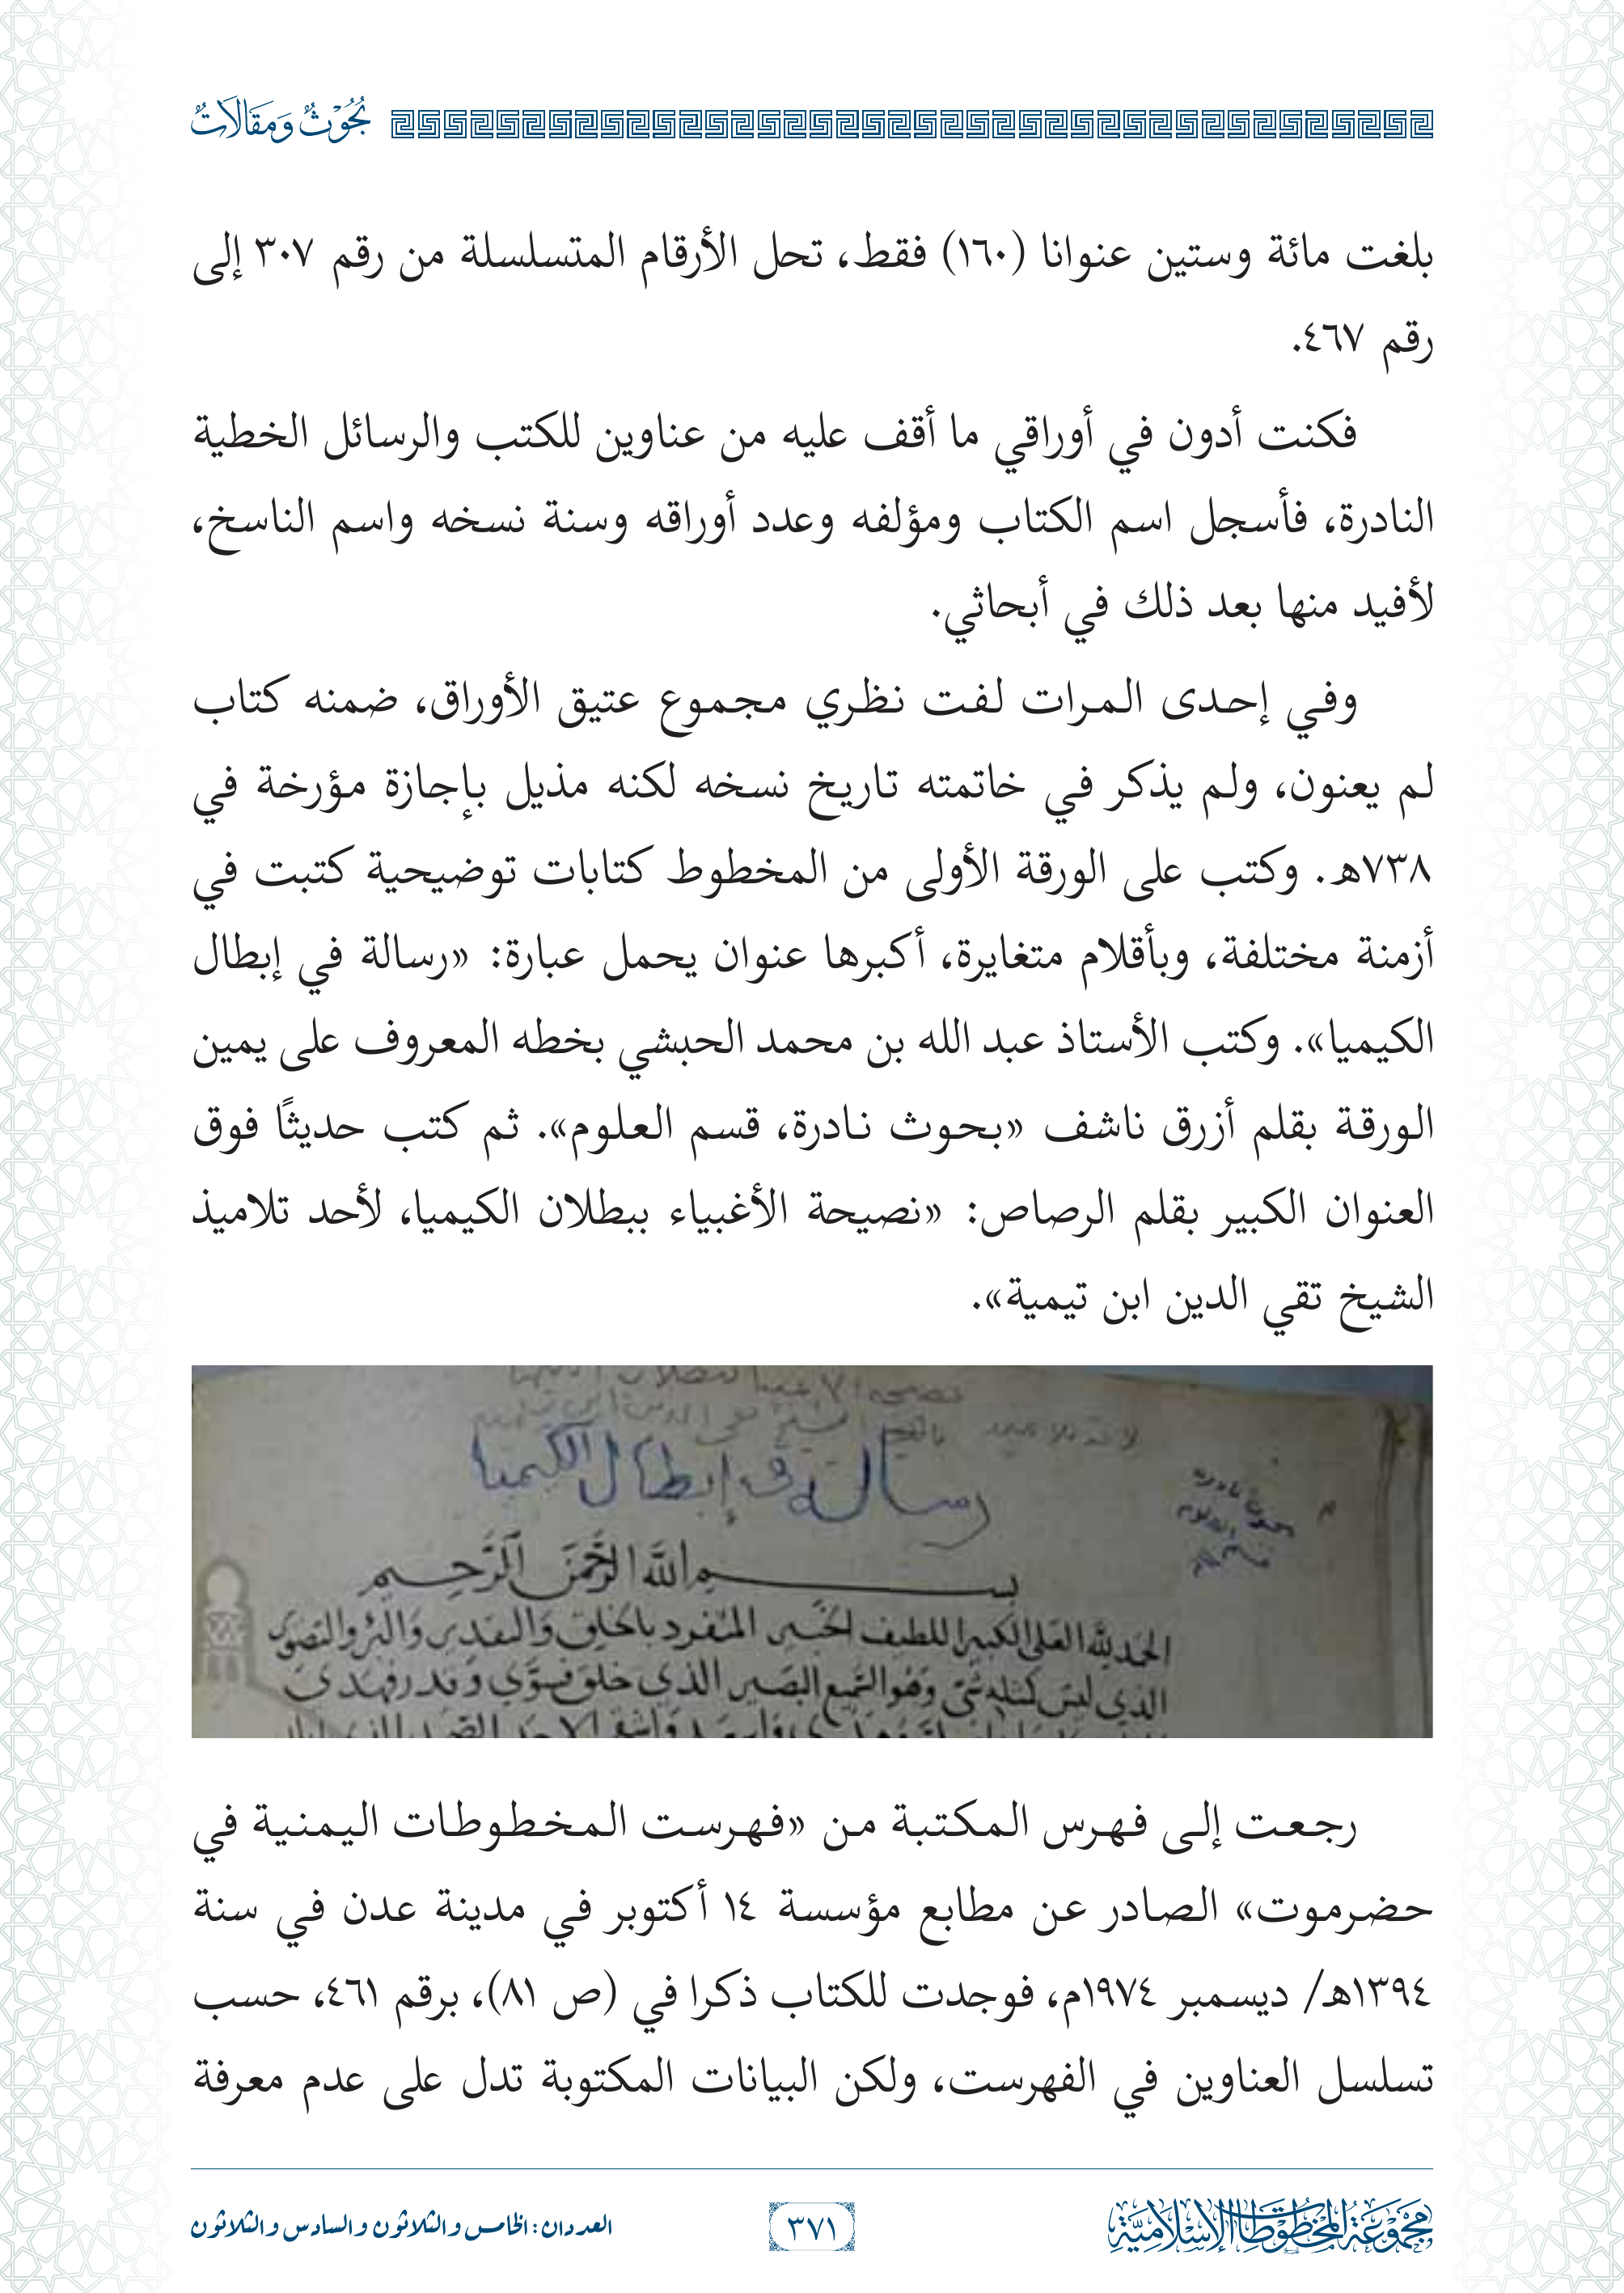 بُحُوْثٌ وَمَقَالَاتٌ
بلغت مائة وستين عنوانا (١٦٠) فقط، تحل الأرقام المتسلسلة من رقم ٣٠٧ إلى
رقم ٤٦٧.
فكنت أدون في أوراقي ما أقف عليه من عناوين للكتب والرسائل الخطية
النادرة، فأسجل اسم الكتاب ومؤلفه وعدد أوراقه وسنة نسخه واسم الناسخ،
لأفيد منها بعد ذلك في أبحاثي.
وفي إحدى المرات لفت نظري مجموع عتيق الأوراق، ضمنه كتاب
لم يعنون، ولم يذكر في خاتمته تاريخ نسخه لكنه مذيل بإجازة مؤرخة في
٧٣٨هـ. وكتب على الورقة الأولى من المخطوط كتابات توضيحية كتبت في
أزمنة مختلفة، وبأقلام متغايرة، أكبرها عنوان يحمل عبارة: «رسالة في إبطال
الكيميا». وكتب الأستاذ عبد الله بن محمد الحبشي بخطه المعروف على يمين
الورقة بقلم أزرق ناشف «بحوث نادرة، قسم العلوم». ثم كتب حديثًا فوق
العنوان الكبير بقلم الرصاص: «نصيحة الأغبياء ببطلان الكيميا، لأحد تلاميذ
الشيخ تقي الدين ابن تيمية».
رسالة في إبطال الكيميا
بحوث نادرة
بسم الله الرَّحْمَنِ الرَّحِيمِ
الحمد لله العلي الكبير اللطيف الخبير المنفرد بالخلق والتقدير والبر والتصوير
الذي ليس كمثله شئ وهو السميع البصير الذي خلق فسوى وقدر فهدى
رجعت إلى فهرس المكتبة من «فهرست المخطوطات اليمنية في
حضرموت» الصادر عن مطابع مؤسسة ١٤ أكتوبر في مدينة عدن في سنة
١٣٩٤هـ/ ديسمبر ١٩٧٤م، فوجدت للكتاب ذكرا في (ص ٨١)، برقم ٤٦١، حسب
تسلسل العناوين في الفهرست، ولكن البيانات المكتوبة تدل على عدم معرفة
مَجْمُوعَةُ المَخْطُوطَاتِ الإِسْلَامِيَّةِ
٣٧١
العددان: الخامس والثلاثون والسادس والثلاثون